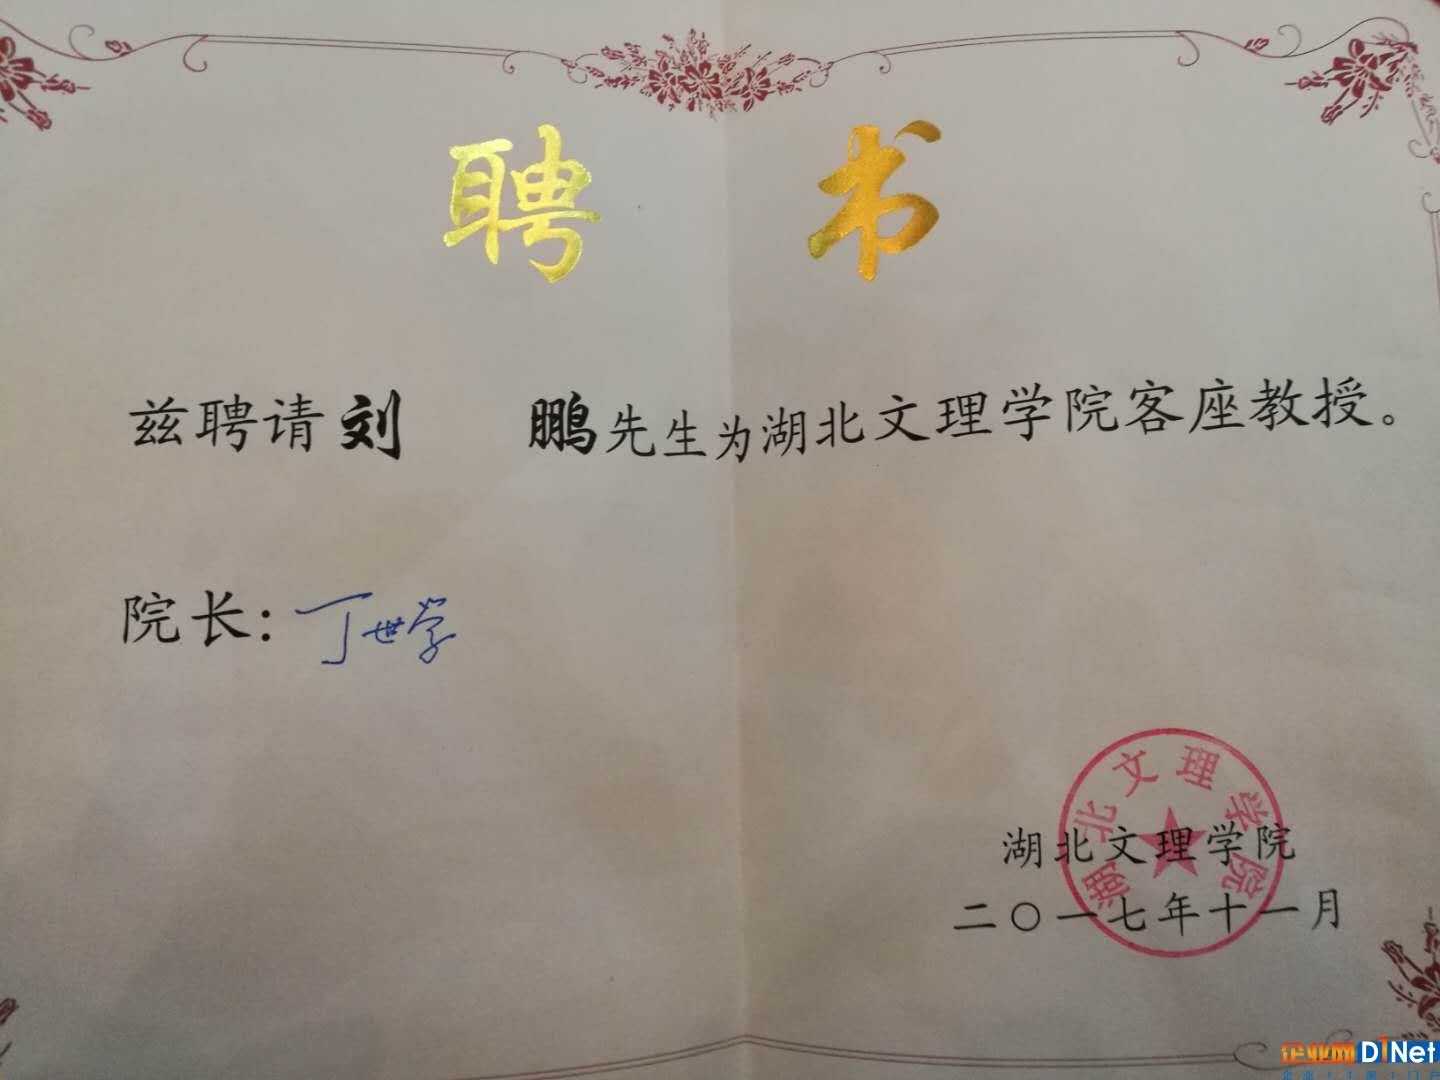 聘 书
兹聘请刘 鹏先生为湖北文理学院客座教授。
院长：丁世学
湖北文理学院
湖北文理学院
二〇一七年十一月
企业网D1Net
企业IT第1门户